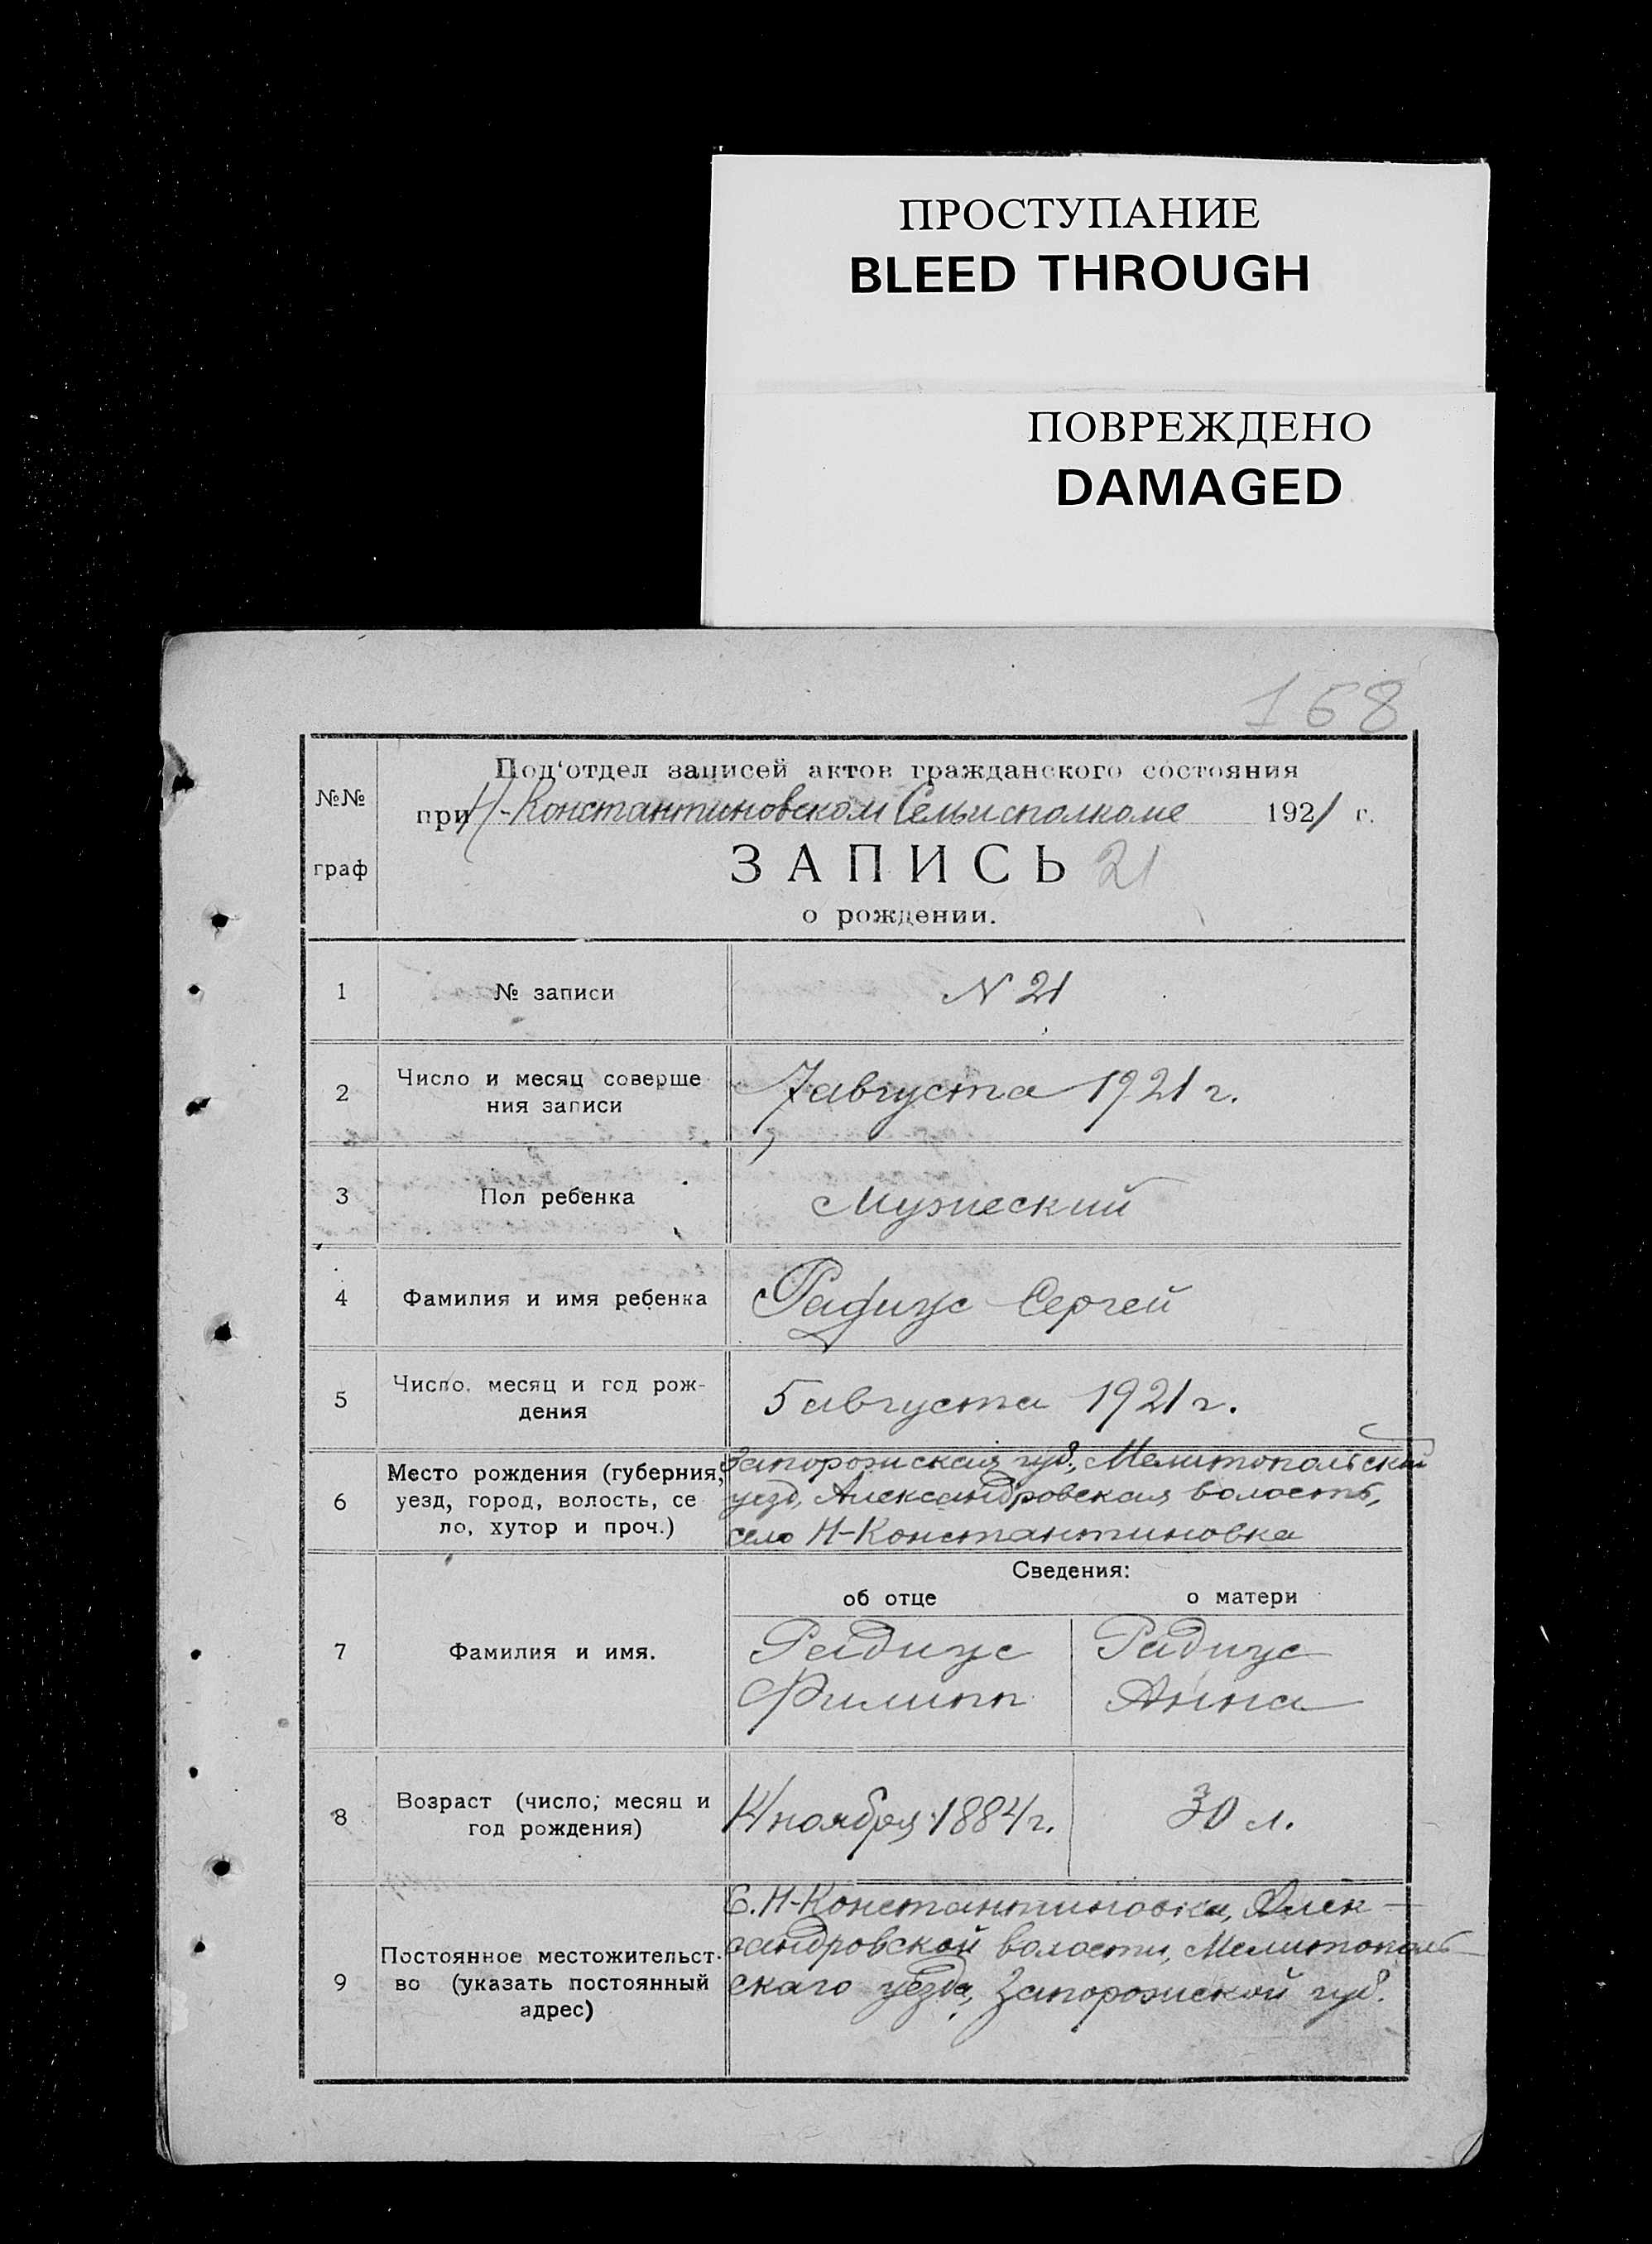 ПРОСТУПАНИЕ
BLEED THROUGH
ПОВРЕЖДЕНО
DAMAGED
168
№№
граф
Под‘отдел записей актов гражданского состояния
при Н-Константиновском Сельисполкоме 1921 г.
ЗАПИСЬ 21
о рождении.
1
№ записи
N 21
2
Число и месяц соверше
ния записи
7 августа 1921 г.
3
Пол ребенка
Мужеский
4
Фамилия и имя ребенка
Радиус Сергей
5
Число, месяц и год рож-
дения
5 августа 1921 г.
6
Место рождения (губерния,
уезд, город, волость, се
ло, хутор и проч.)
Запорожская губ., Мелитопольский
уезд, Александровская волость,
село Н-Константиновка
Сведения:
об отце
о матери
7
Фамилия и имя.
Радиус
Филипп
Радиус
Анна
8
Возраст (число, месяц и
год рождения)
14 ноября 1884 г.
30 л.
9
Постоянное местожительст-
во (указать постоянный
адрес)
С. Н-Константиновка, Алек-
сандровской волости, Мелитополь-
скаго уезда, Запорожской губ.